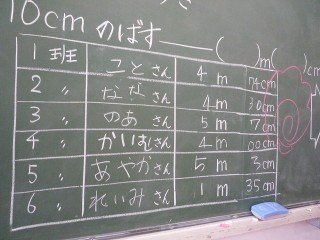 10cm のばす——( )m( )cm
1班 ことさん 4m 74cm
2 〃 ななさん 4m 30cm
3 〃 のあさん 5m 7cm
4 〃 かいむさん 4m 00cm
5 〃 あやかさん 5m 3cm
6 〃 れいみさん 1m 35cm